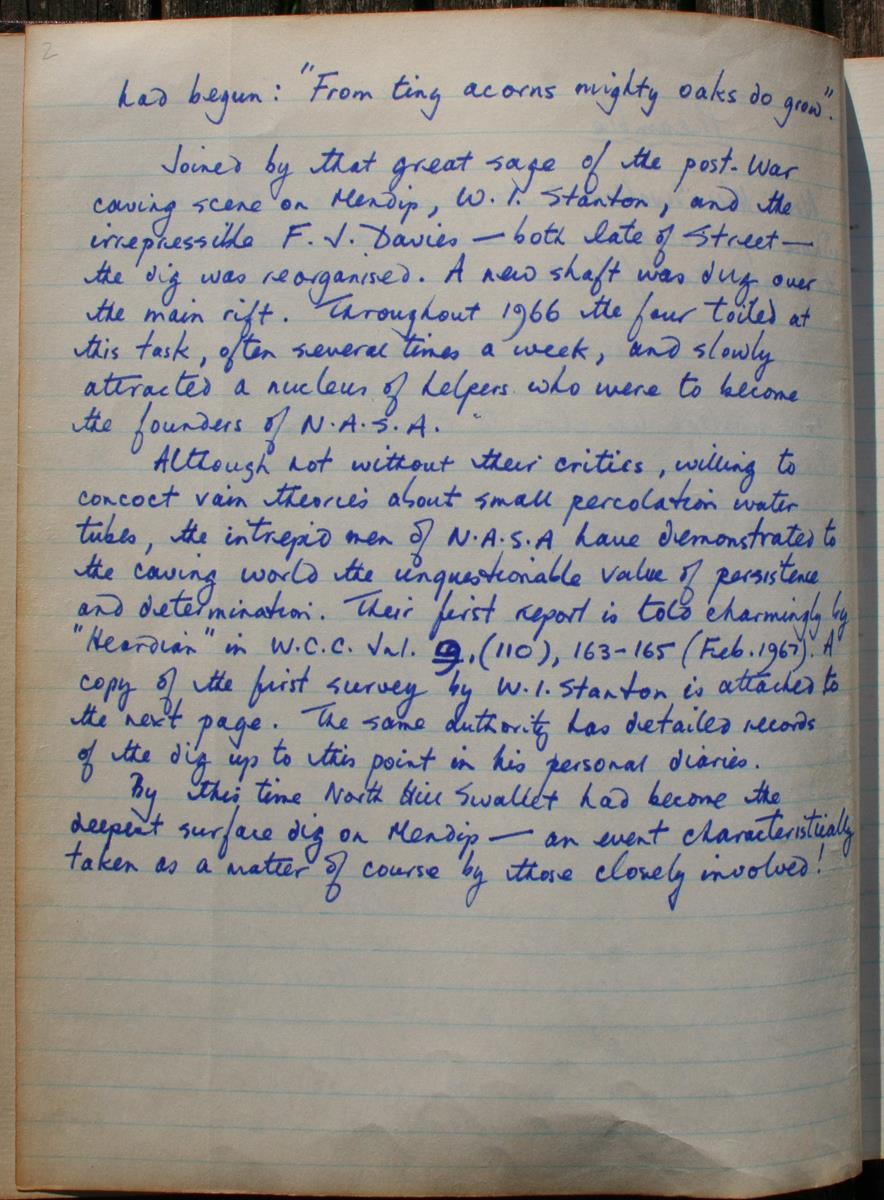 2
had begun: "From ting acorns mighty oaks do grow".
Joined by that great sage of the post-War
caving scene on Mendip, W. I. Stanton, and the
irrepressible F. J. Davies — both late of Street —
the dig was reorganised. A new shaft was dug over
the main rift. Throughout 1966 the four toiled at
this task, often several times a week, and slowly
attracted a nucleus of helpers who were to become
the founders of N.A.S.A.
Although not without their critics, willing to
concoct vain theories about small percolation water
tubes, the intrepid men of N.A.S.A have demonstrated to
the caving world the unquestionable value of persistence
and determination. Their first report is told charmingly by
"Heardian" in W.C.C. Jnl. 9, (110), 163-165 (Feb. 1967). A
copy of the first survey by W.I. Stanton is attached to
the next page. The same authority has detailed records
of the dig up to this point in his personal diaries.
By this time North Hill Swallet had become the
deepest surface dig on Mendip — an event characteristically
taken as a matter of course by those closely involved!